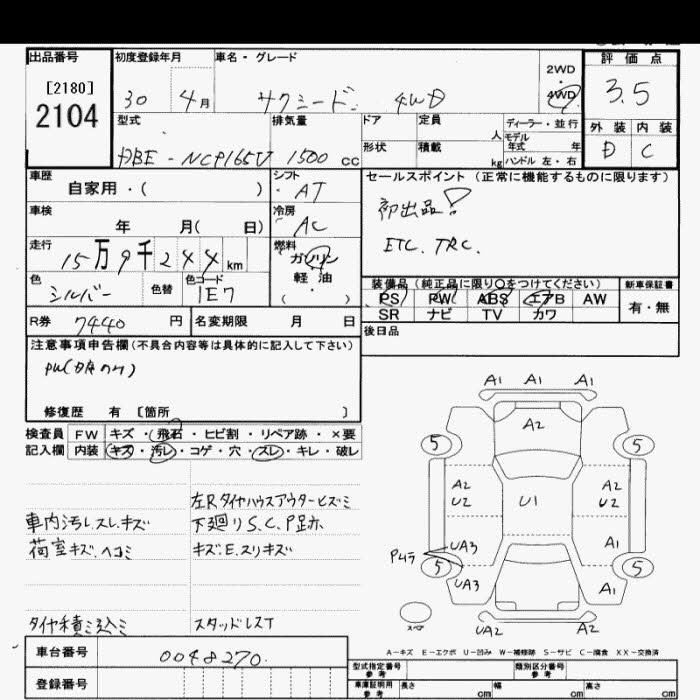 出品番号
[2180]
2104
初度登録年月
30 4月
車名・グレード
サクシード 4WD
2WD
・
4WD
評価点
3.5
外装 内装
D C
型式
DBE-NCP165V
排気量
1500 cc
ドア
定員
人
形状
積載
kg
ディーラー・並行
モデル
年式 年
ハンドル 左・右
車歴
自家用・( )
シフト
AT
車検
年 月( 日)
冷房
AC
走行
15万9千244km
燃料
ガソリン
軽油
( ・ )
色
シルバー
色替
色コード
1E7
R券 7440 円
名変期限 月 日
セールスポイント (正常に機能するものに限ります)
初出品!
ETC. TRC.
装備品(純正品に限り○をつけてください)
新車保証書
PS PW ABS エアB AW
SR ナビ TV カワ
有・無
後日品
注意事項申告欄(不具合内容等は具体的に記入して下さい)
修復歴 有 [箇所 ]
検査員 FW キズ・飛石・ヒビ割・リペア跡・×要
記入欄 内装 キズ・汚レ・コゲ・穴・スレ・キレ・破レ
左Rタイヤハウスアウターヒズミ
車内汚レ.スレ.キズ
下廻りS.C.P足ホ
荷室キズ.ヘコミ
キズ.E.スリキズ
タイヤ積ミ込ミ
スタッドレスT
A1 A1 A1
A2
5 5
A2
U2
U1
A2
U2
UA3
A1
Pムラ
5 5
UA3
A1
スペア
UA2 A2
A-キズ E-エクボ U-凹み W-補修跡 S-サビ C-腐食 XX-交換済
車台番号
0048270
登録番号
型式指定番号
参考
類別区分番号
参考
車庫証明用
参考
長さ cm
幅 cm
高さ cm